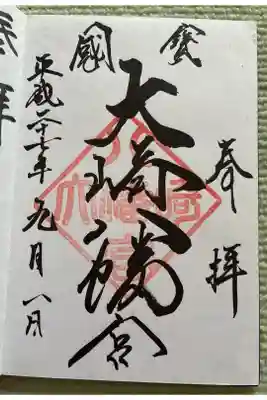 奉拝
寳國
大崎八幡宮
平成二十一年九月八日